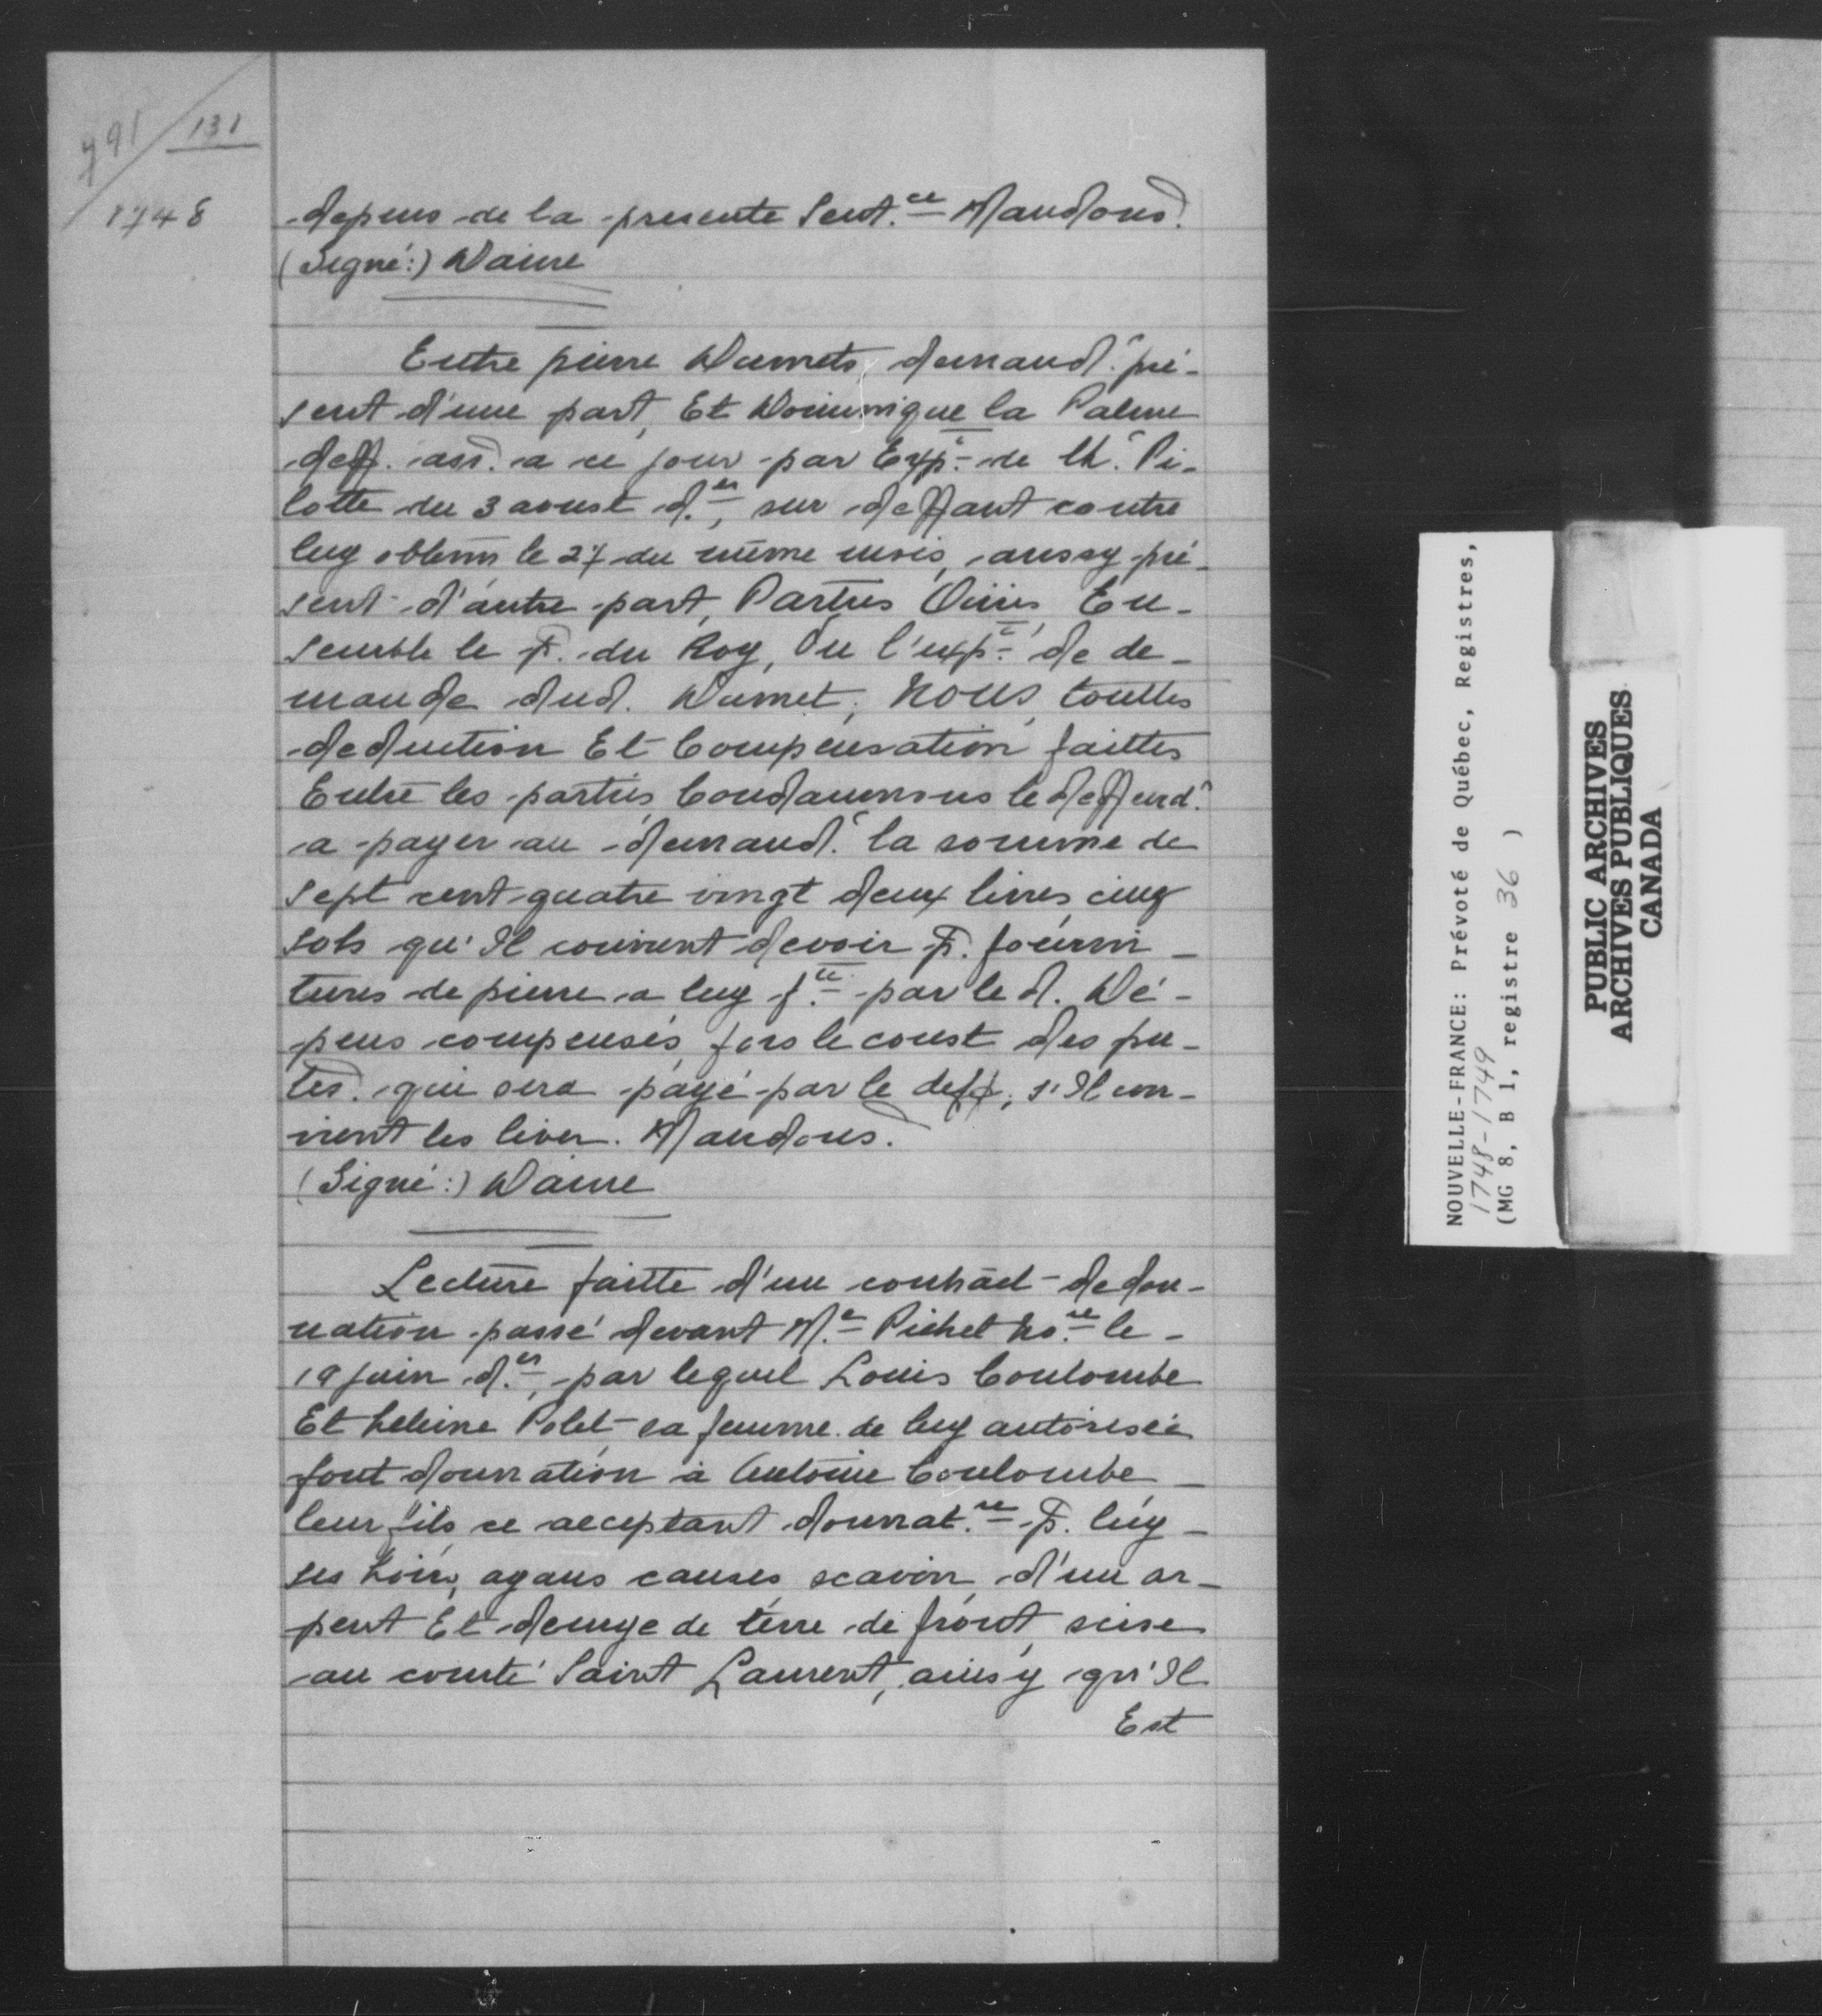 791/131
1748
depens de la presente Sent.ce Mandons.
(Signé:) Daine
Entre pierre Dumets, demand.r pré-
sent d'une part, Et Dominique la Palme
deff. ass. a ce jour par Exp.t de lh.r Pi-
lotte du 3 aoust d.er, sur deffaut contre
luy obtenu le 27 du même mois, aussy pré-
sent d'autre part, Parties Ouies, En-
semble le P. du Roy, Vu l'exp.t de de-
mande dud. Dumet, Nous, touttes
deduction Et Compensation faittes
Entre les parties, Condamnons le deffend.r
a payer au demand.r la somme de
sept cent quatre vingt deux livres cinq
sols qu'Il convient devoir P. fourni-
tures de pierre a luy f.te par le d. Dé-
pens compensés, fors le coust des pn-
tes. qui sera payé par le deff., s'Il con-
vient les lever. Mandons.
(Signé:) Daine
Lecture faitte d'un contract de don-
nation passé devant M.e Pichet no.re le
19 juin d.er, par lequel Louis Coulombe
Et heleine Polet sa femme de luy autorisée
font donnation à Antoine Coulombe
leur fils ce acceptant donnat.re P. luy
ses hoirs, ayans causes scavoir d'un ar-
pent Et demye de terre de front, scise
au comté Saint Laurent, ainsy qu'Il
Est
NOUVELLE-FRANCE: Prévoté de Québec, Registres,
1748-1749
(MG 8, B 1, registre 36 )
PUBLIC ARCHIVES
ARCHIVES PUBLIQUES
CANADA